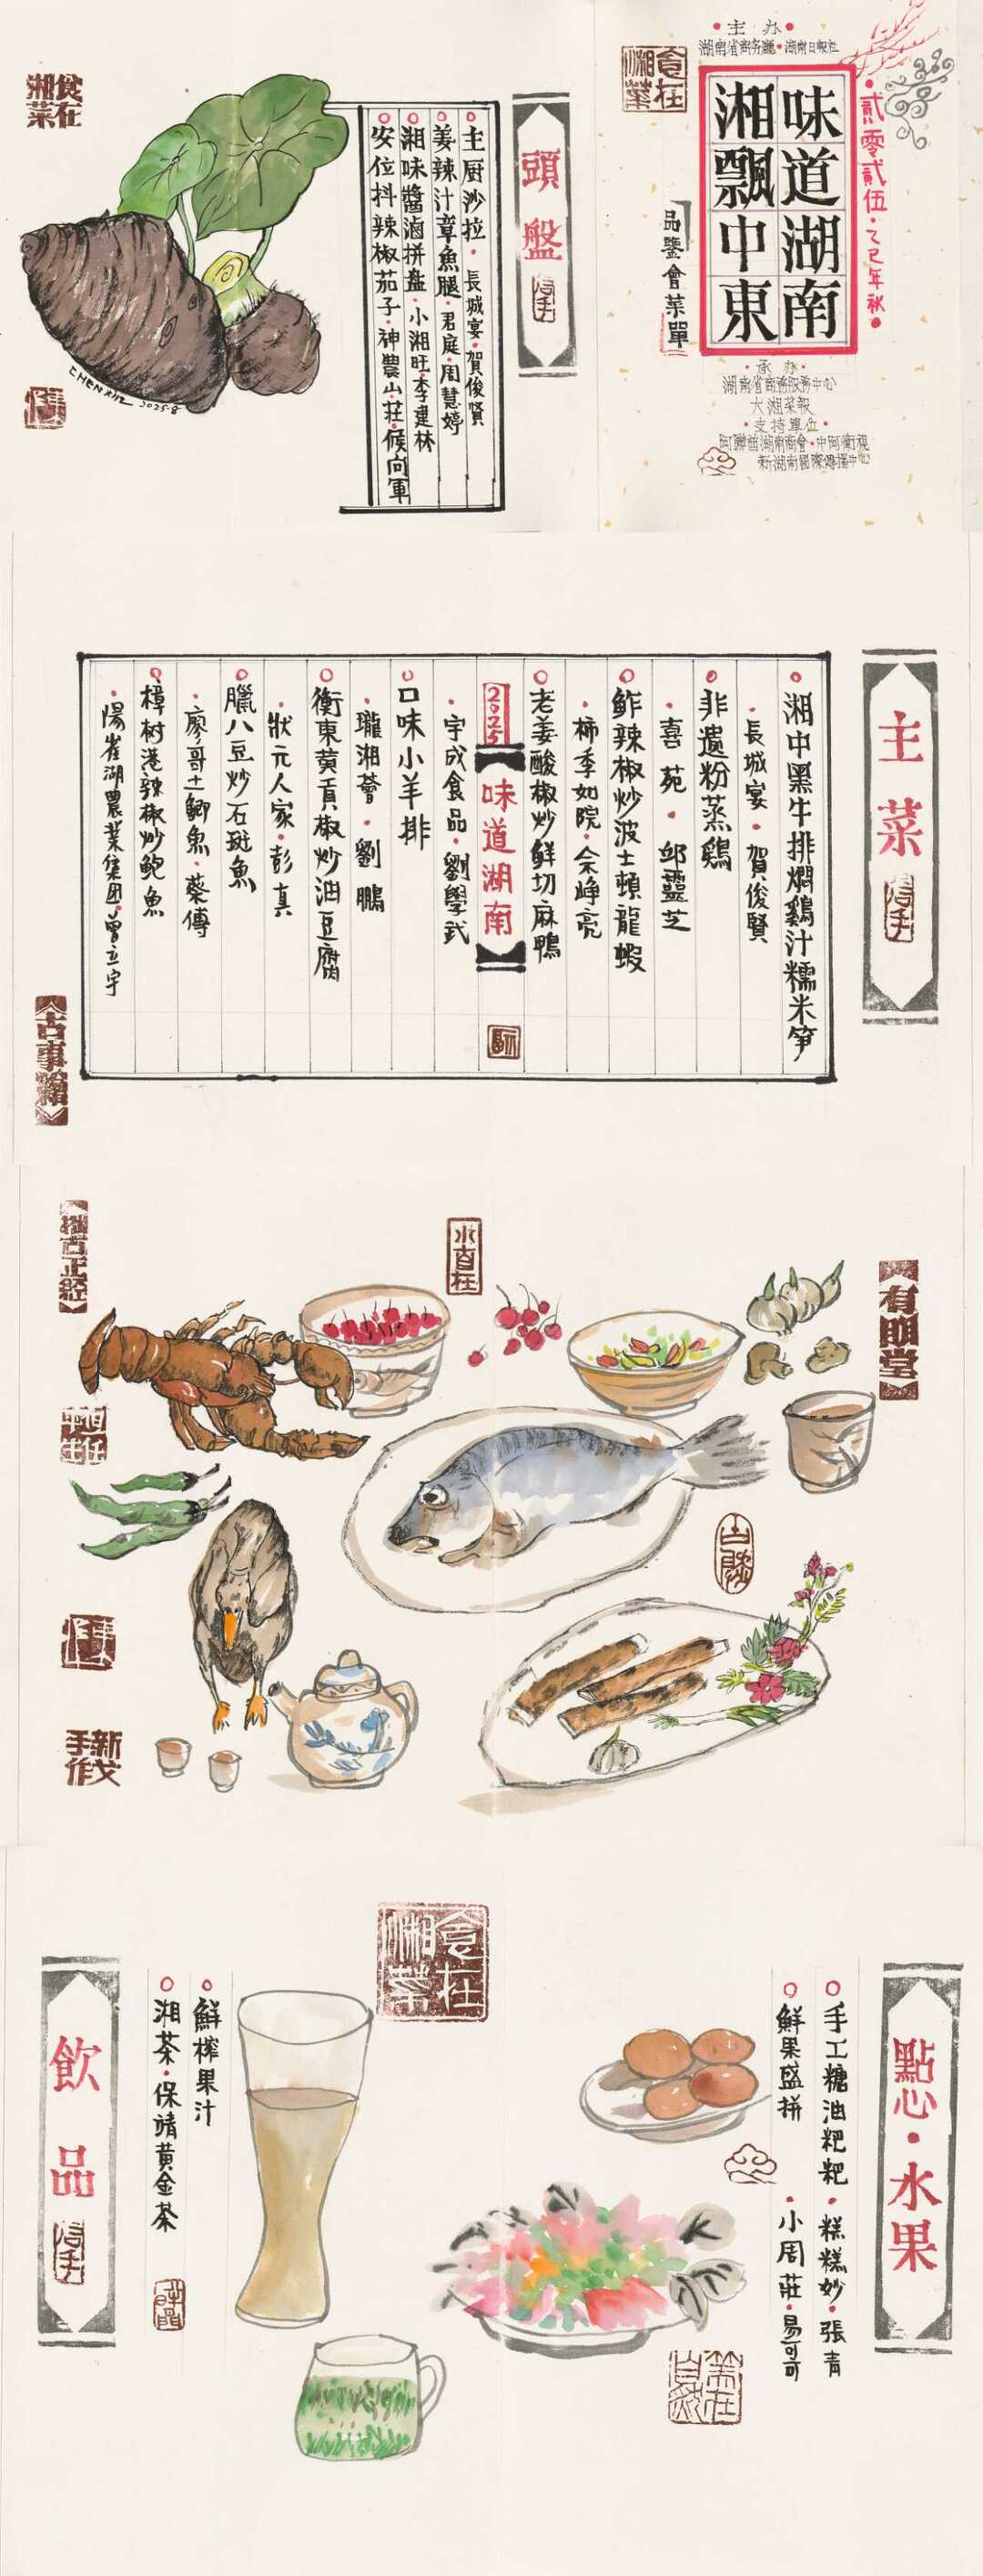 主办
湖南省商务廳·湖南日報社
味道湖南
湘飄中東
貳零貳伍·乙巳年秋
品鑒會菜單
食在湘菜
承办
湖南省商務服務中心
大湘菜報
支持單位
阿聯酋湖南商會·中阿衛視
新湖南國際傳播中心
頭盤
主厨沙拉·長城宴·賀俊賢
姜辣汁章魚腿·君庭·周慧婷
湘味醬滷拼盘·小湘旺·李建林
安位抖辣椒茄子·神農山莊·候向軍
食在湘菜
2025.8
主菜
湘中黑牛排燜鷄汁糯米笋
·長城宴·賀俊賢
非遺粉蒸鷄
·喜苑·邱靈芝
鮓辣椒炒波士頓龍蝦
·柿季如院·佘崢亮
老姜酸椒炒鮮切麻鴨
2025味道湖南
·宇成食品·劉學武
口味小羊排
·瓏湘薈·劉鵬
衡東黄貢椒炒油豆腐
·狀元人家·彭真
臘八豆炒石斑魚
·廖哥土鯽魚·蔡傅
樟树港辣椒炒鲍魚
·陽雀湖農業集团·曾立宇
有朋堂
點心·水果
手工糖油粑粑·糕糕妙·張青
鮮果盛拼·小周莊·易可可
食在湘菜
飲品
鮮榨果汁
湘茶·保靖黄金茶